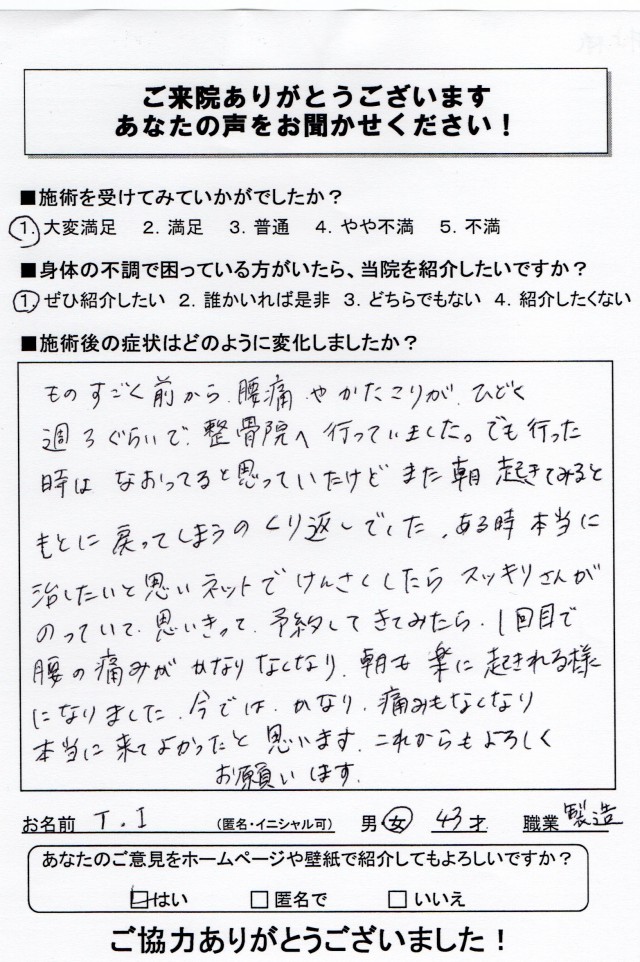 ご来院ありがとうございます
あなたの声をお聞かせください！
■施術を受けてみていかがでしたか？
1. 大変満足 2. 満足 3. 普通 4. やや不満 5. 不満
■身体の不調で困っている方がいたら、当院を紹介したいですか？
1. ぜひ紹介したい 2. 誰かいれば是非 3. どちらでもない 4. 紹介したくない
■施術後の症状はどのように変化しましたか？
ものすごく前から、腰痛やかたこりが、ひどく
週3ぐらいで、整骨院へ行っていました。でも行った
時はなおってると思っていたけどまた朝起きてみると
もとに戻ってしまうのくり返しでした、ある時本当に
治したいと思いネットでけんさくしたらスッキリさんが
のっていて、思いきって、予約してきてみたら、1回目で
腰の痛みがかなりなくなり、朝も楽に起きれる様
になりました、今では、かなり、痛みもなくなり
本当に来てよかったと思います、これからもよろしく
お願いします。
お名前 T.I （匿名・イニシャル可） 男・女 43才 職業 製造
あなたのご意見をホームページや壁紙で紹介してもよろしいですか？
はい □匿名で □いいえ
ご協力ありがとうございました！